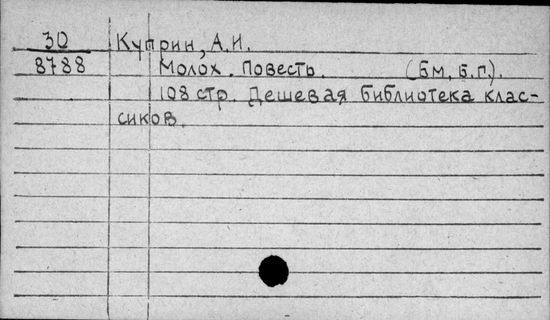 30 Куприн, А.И.
8788 Молох. Повесть. (Бм, б.г.).
108 стр. Дешевая библиотека клас-
сиков.